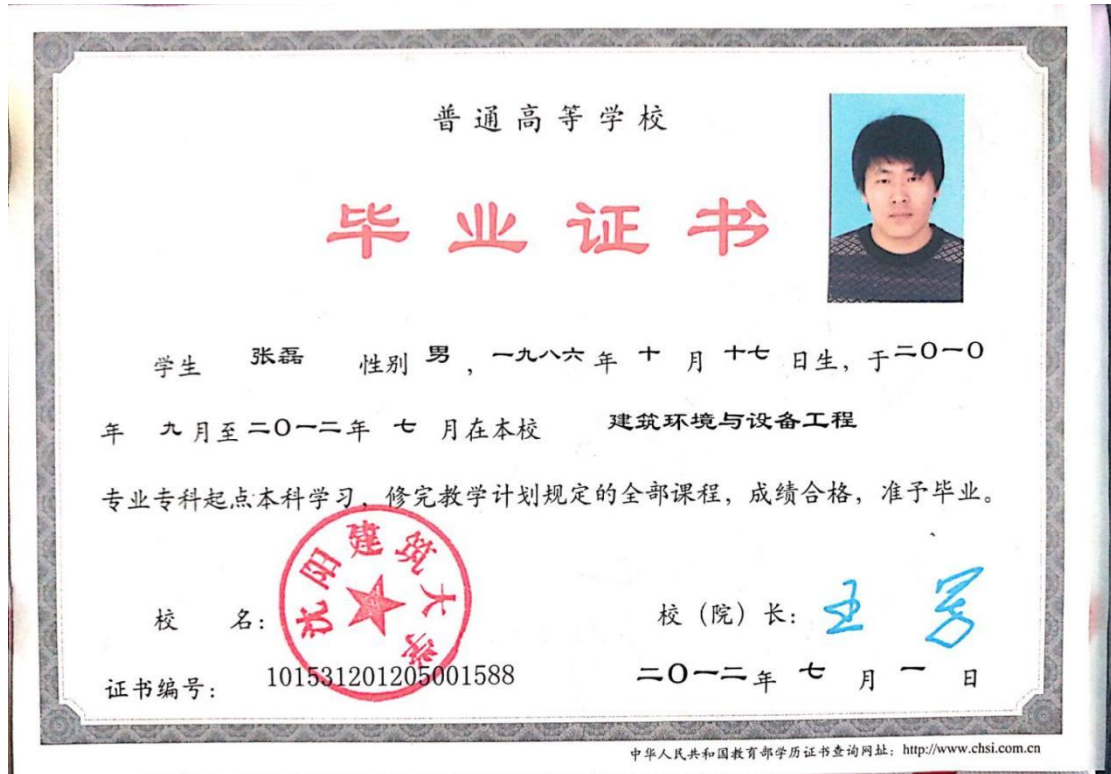 普通高等学校
毕业证书
学生 张磊 性别 男 , 一九八六 年 十 月 十七 日生, 于二〇一〇
年 九 月至二〇一二年 七 月在本校 建筑环境与设备工程
专业专科起点本科学习, 修完教学计划规定的全部课程, 成绩合格, 准予毕业。
沈阳建筑大学
校 名: 校 (院) 长:
证书编号: 101531201205001588 二〇一二年 七 月 一 日
中华人民共和国教育部学历证书查询网址: http://www.chsi.com.cn